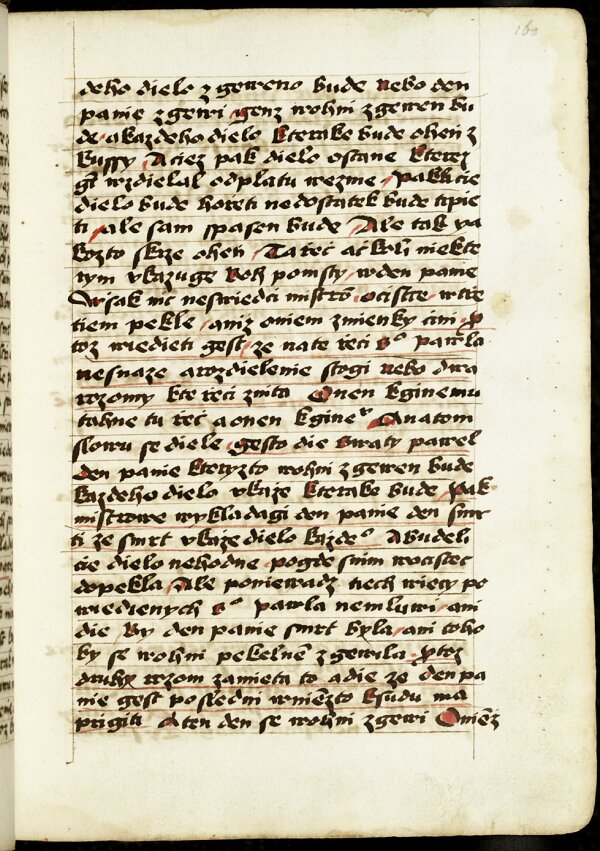 160
deho dielo zgeweno bude nebo den
panie zgewi genz wohni zgewen bu
de a kazdeho dielo kterake bude ohen z
kussy Aciez pak dielo ostane kterez
gt wzdielal odplatu wezme Paklicie
dielo bude horeti nedostatek bude trpie
ti ale sam spasen bude Ale tak ya
kozto skrze ohen Tato rec ac koli niekte
rym vkazuge boh pomsty wden panie
Wsak nic neswiedci mistro ocistce wtie
tiem pekle aniz oniem zmienky cini
toz wiedieti gest ze nate reci pawla
nesnaze a rozdielenie stogi nebo dwa
rozomy kte reci znita Onen kginemu
tahne tu rec a onen kgine Anatom
slowu se diele gesto die swaty pawel
den panie kteryzto wohni zgewen bude
kazdeho dielo vkaze kterake bude Pak
mistrowe wykladagi den panie den smr
ti ze smrt vkaze dielo kazde A budeli
cie dielo nehodne pogde snim wocistec
dopekla Ale poniewadz tiech wiecy po
wiedienych pawla nemluwi ani
die by den panie smrt byla ani toho
by se wohni pekelne zgewila
druhy wzom zamieta to a die ze den pa
nie gest posledni wniemzto ksudu ma
prigiti A ten den se wohni zgewi Oniemz